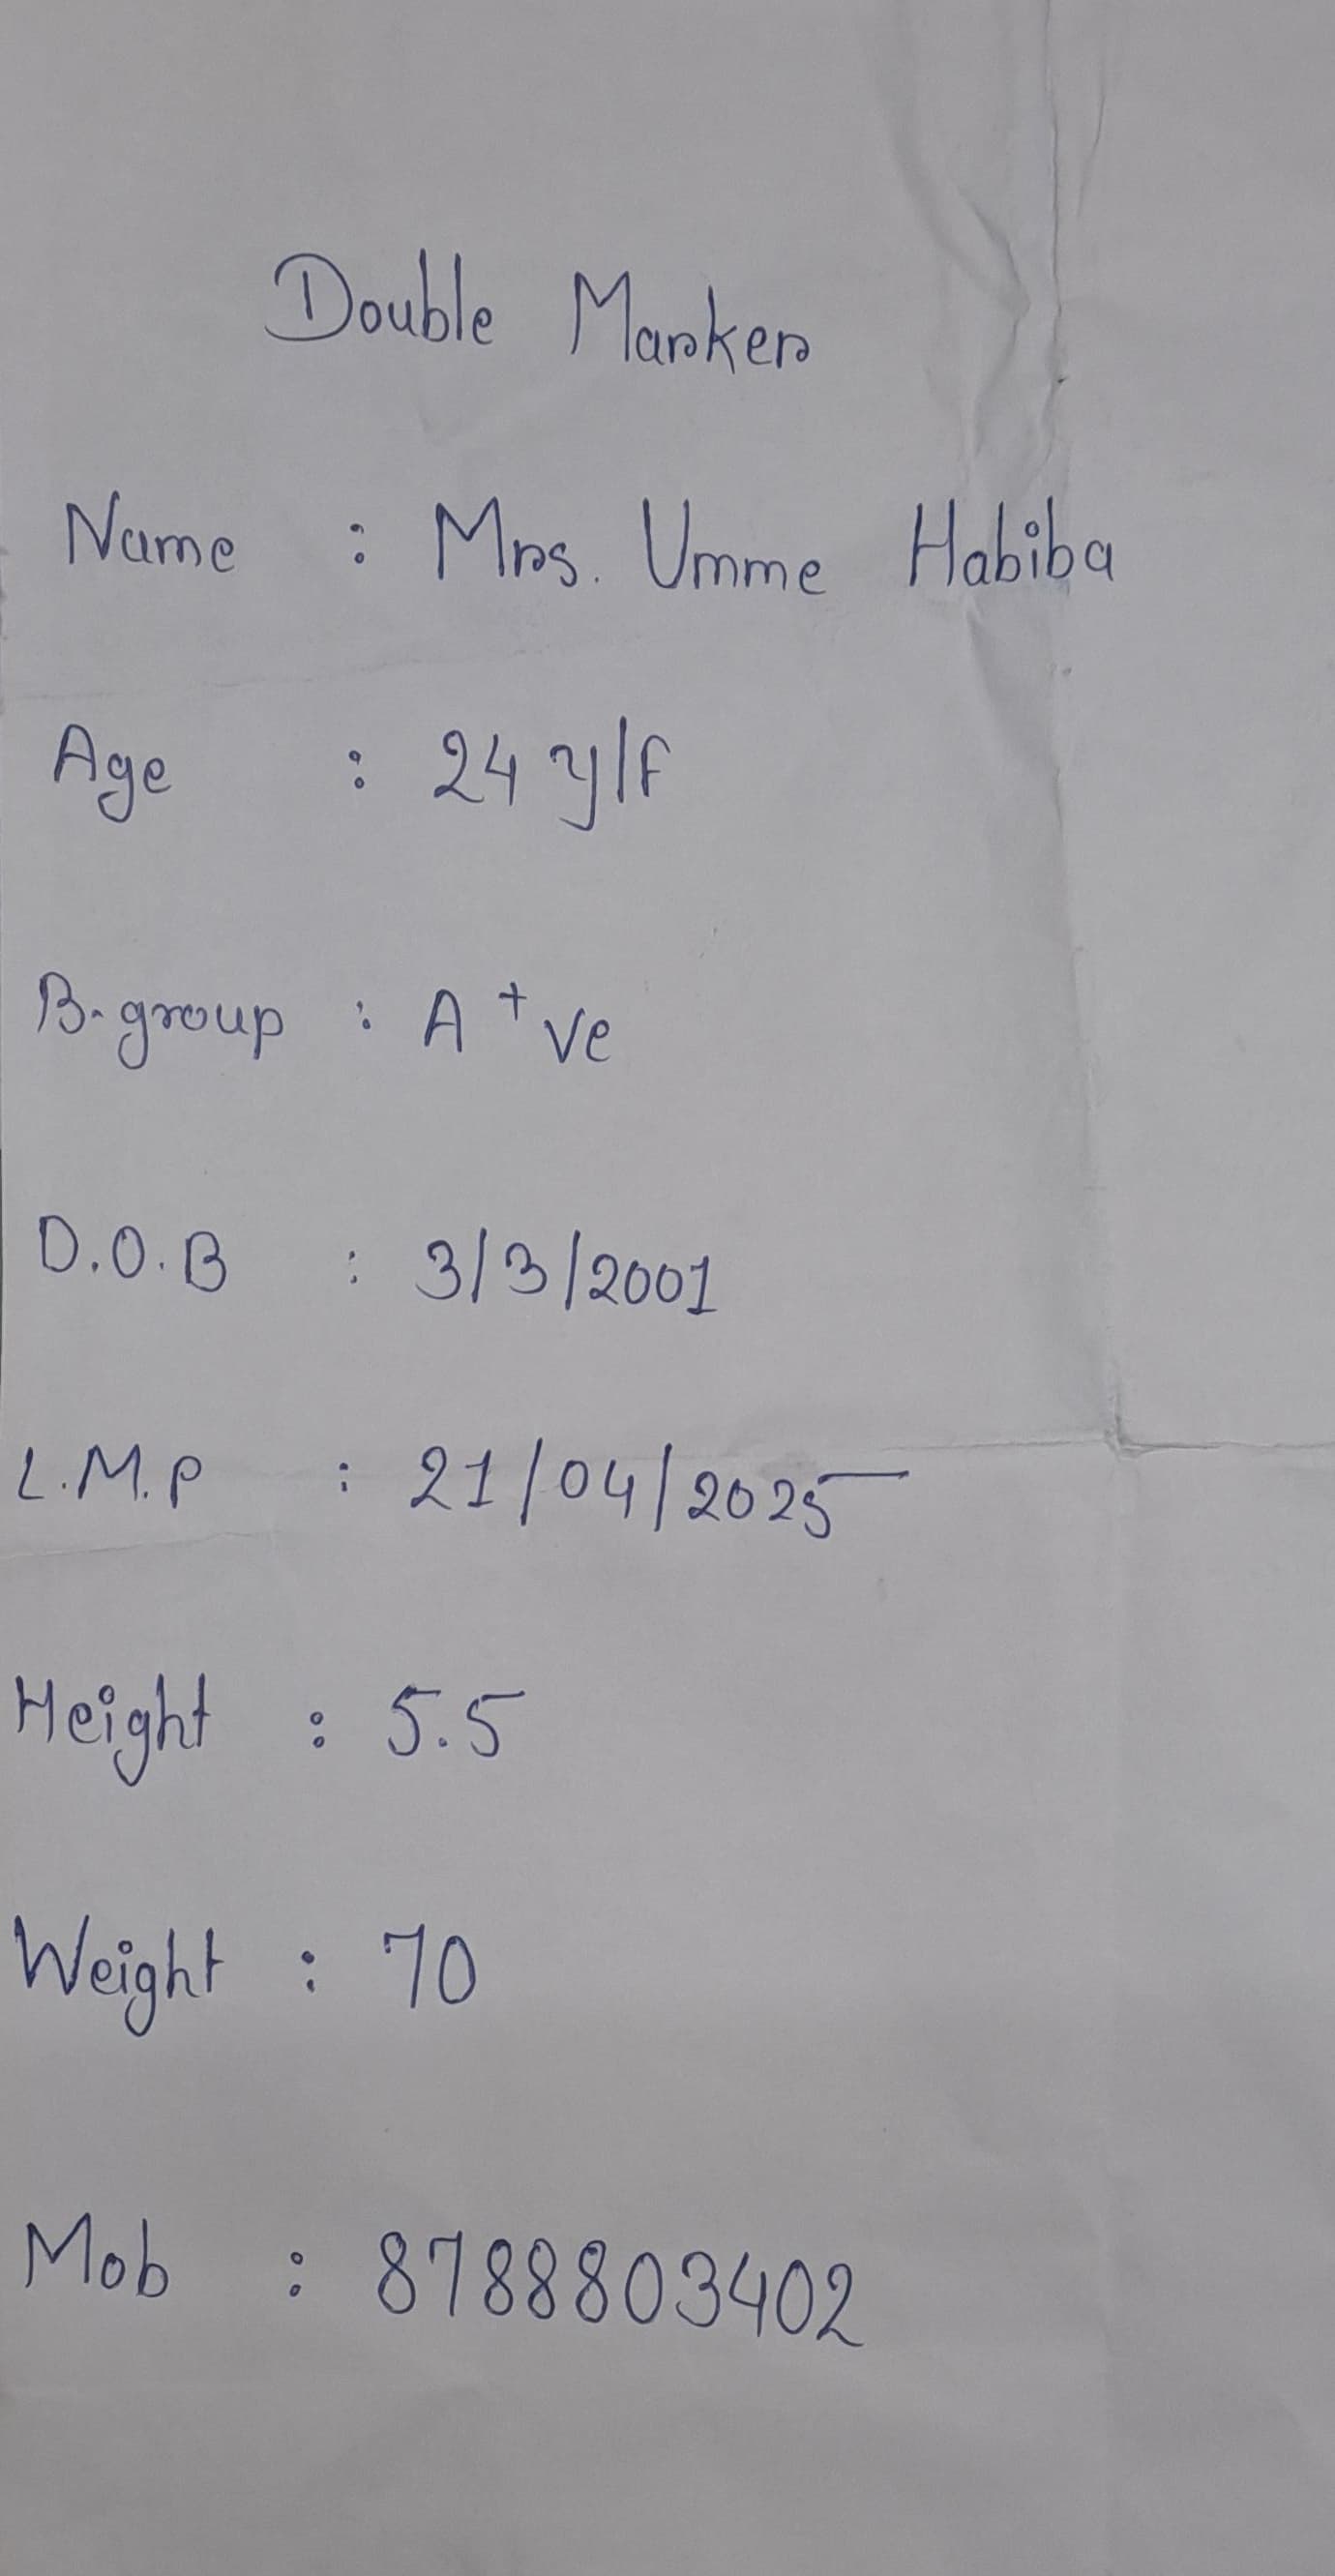 Double Marker
Name : Mrs. Umme Habiba
Age : 24 y/F
B.group : A +ve
D.O.B : 3/3/2001
L.M.P : 21/04/2025
Height : 5.5
Weight : 70
Mob : 8788803402